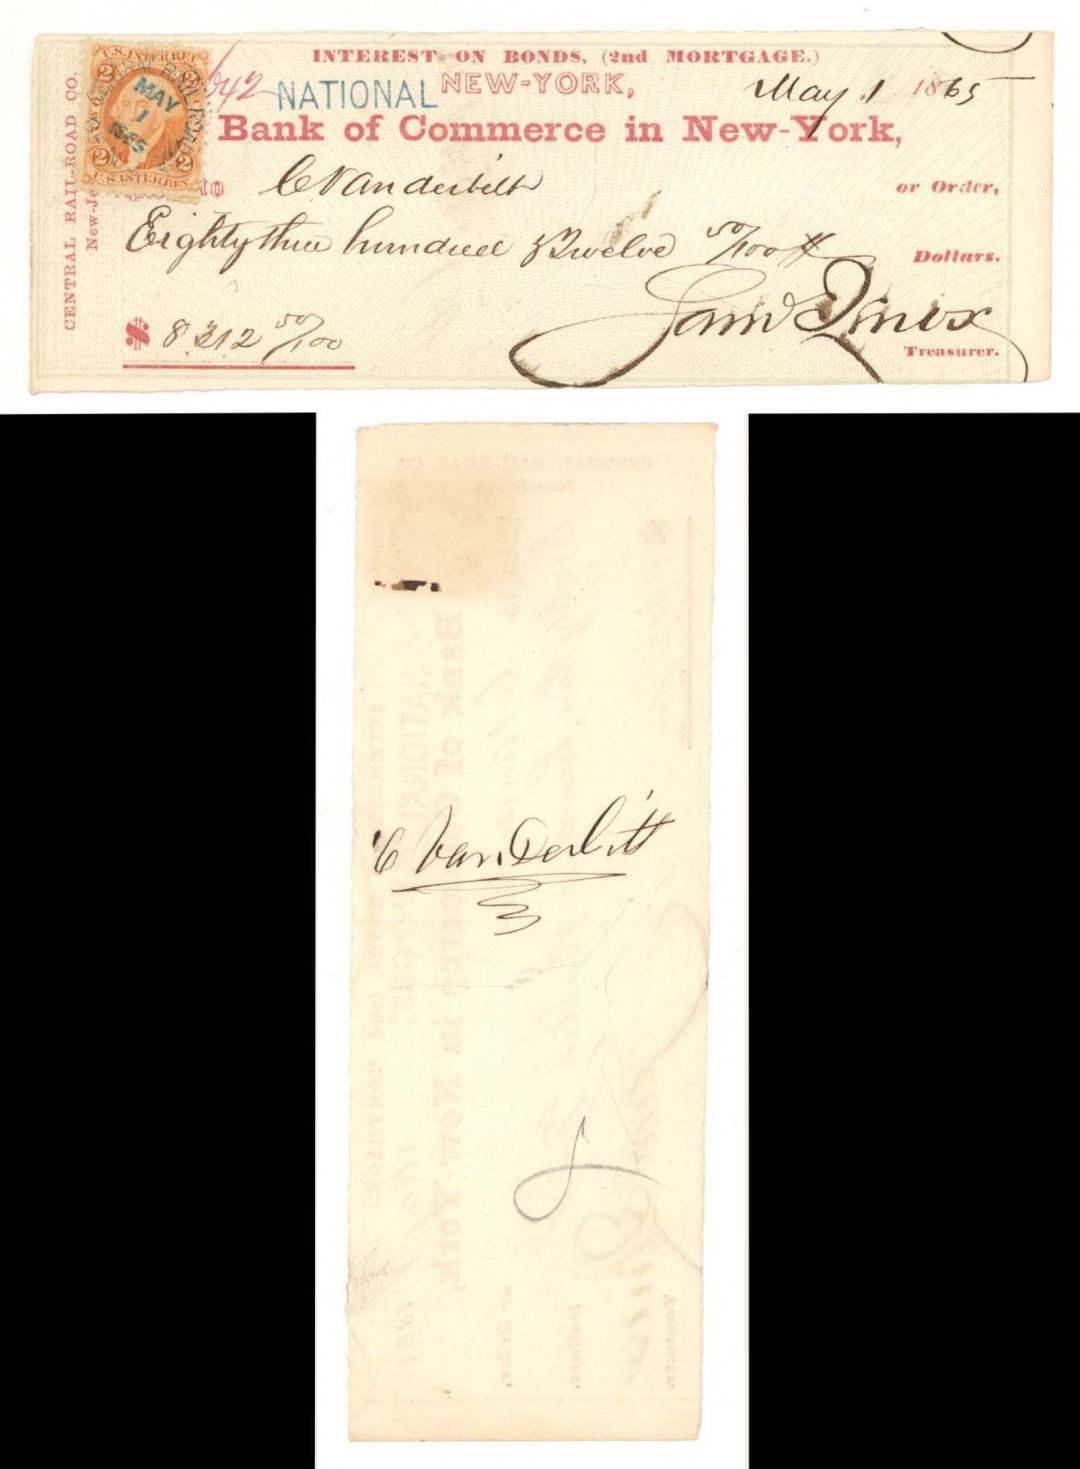 INTEREST ON BONDS, (2nd MORTGAGE.)
642 NATIONAL NEW-YORK, May 1 1865
Bank of Commerce in New-York,
to C Vanderbilt or Order,
Eighty three hundred & Twelve 50/100 Dollars.
$ 8312 50/100 Sam Knox
Treasurer.
CENTRAL RAIL-ROAD CO.
New-Je
U.S. INTER. REV.
2
MAY
1
1865
2 2
U.S. INTER. REV.
C VanDerbilt